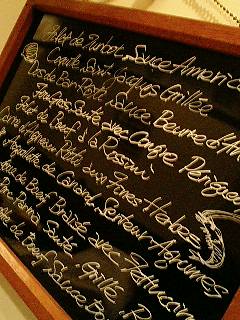 Filet de Turbot, Sauce America
Coquille Saint Jacques Grillée
Dos de Bar Rôti, Sauce Beurre d'A
Sauté avec Confie Périgo
Filet de Boeuf à la Rossini
d'Agneau Rôti aux Fines Herbes
Aiguillette de Canard, Senteur Agrumes
de Boeuf Braisé avec Fettuccin
Sauté, Grillé
de Boeuf, Sauce Bo